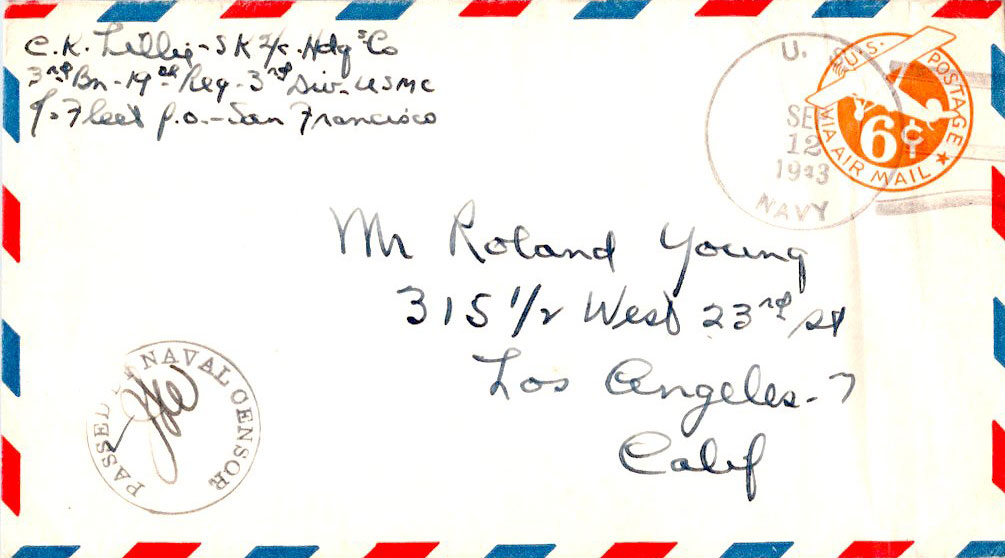 C.K. Lillie - SK 2/c - Hdqs Co
3rd Bn - 19th Reg - 3rd Div - USMC
℅ Fleet P.O. - San Francisco
U.S.
SEP
12
1943
NAVY
U.S. POSTAGE
6¢
VIA AIR MAIL
Mr Roland Young
315 1/2 West 23rd St
Los Angeles - 7
Calif
PASSED BY NAVAL CENSOR